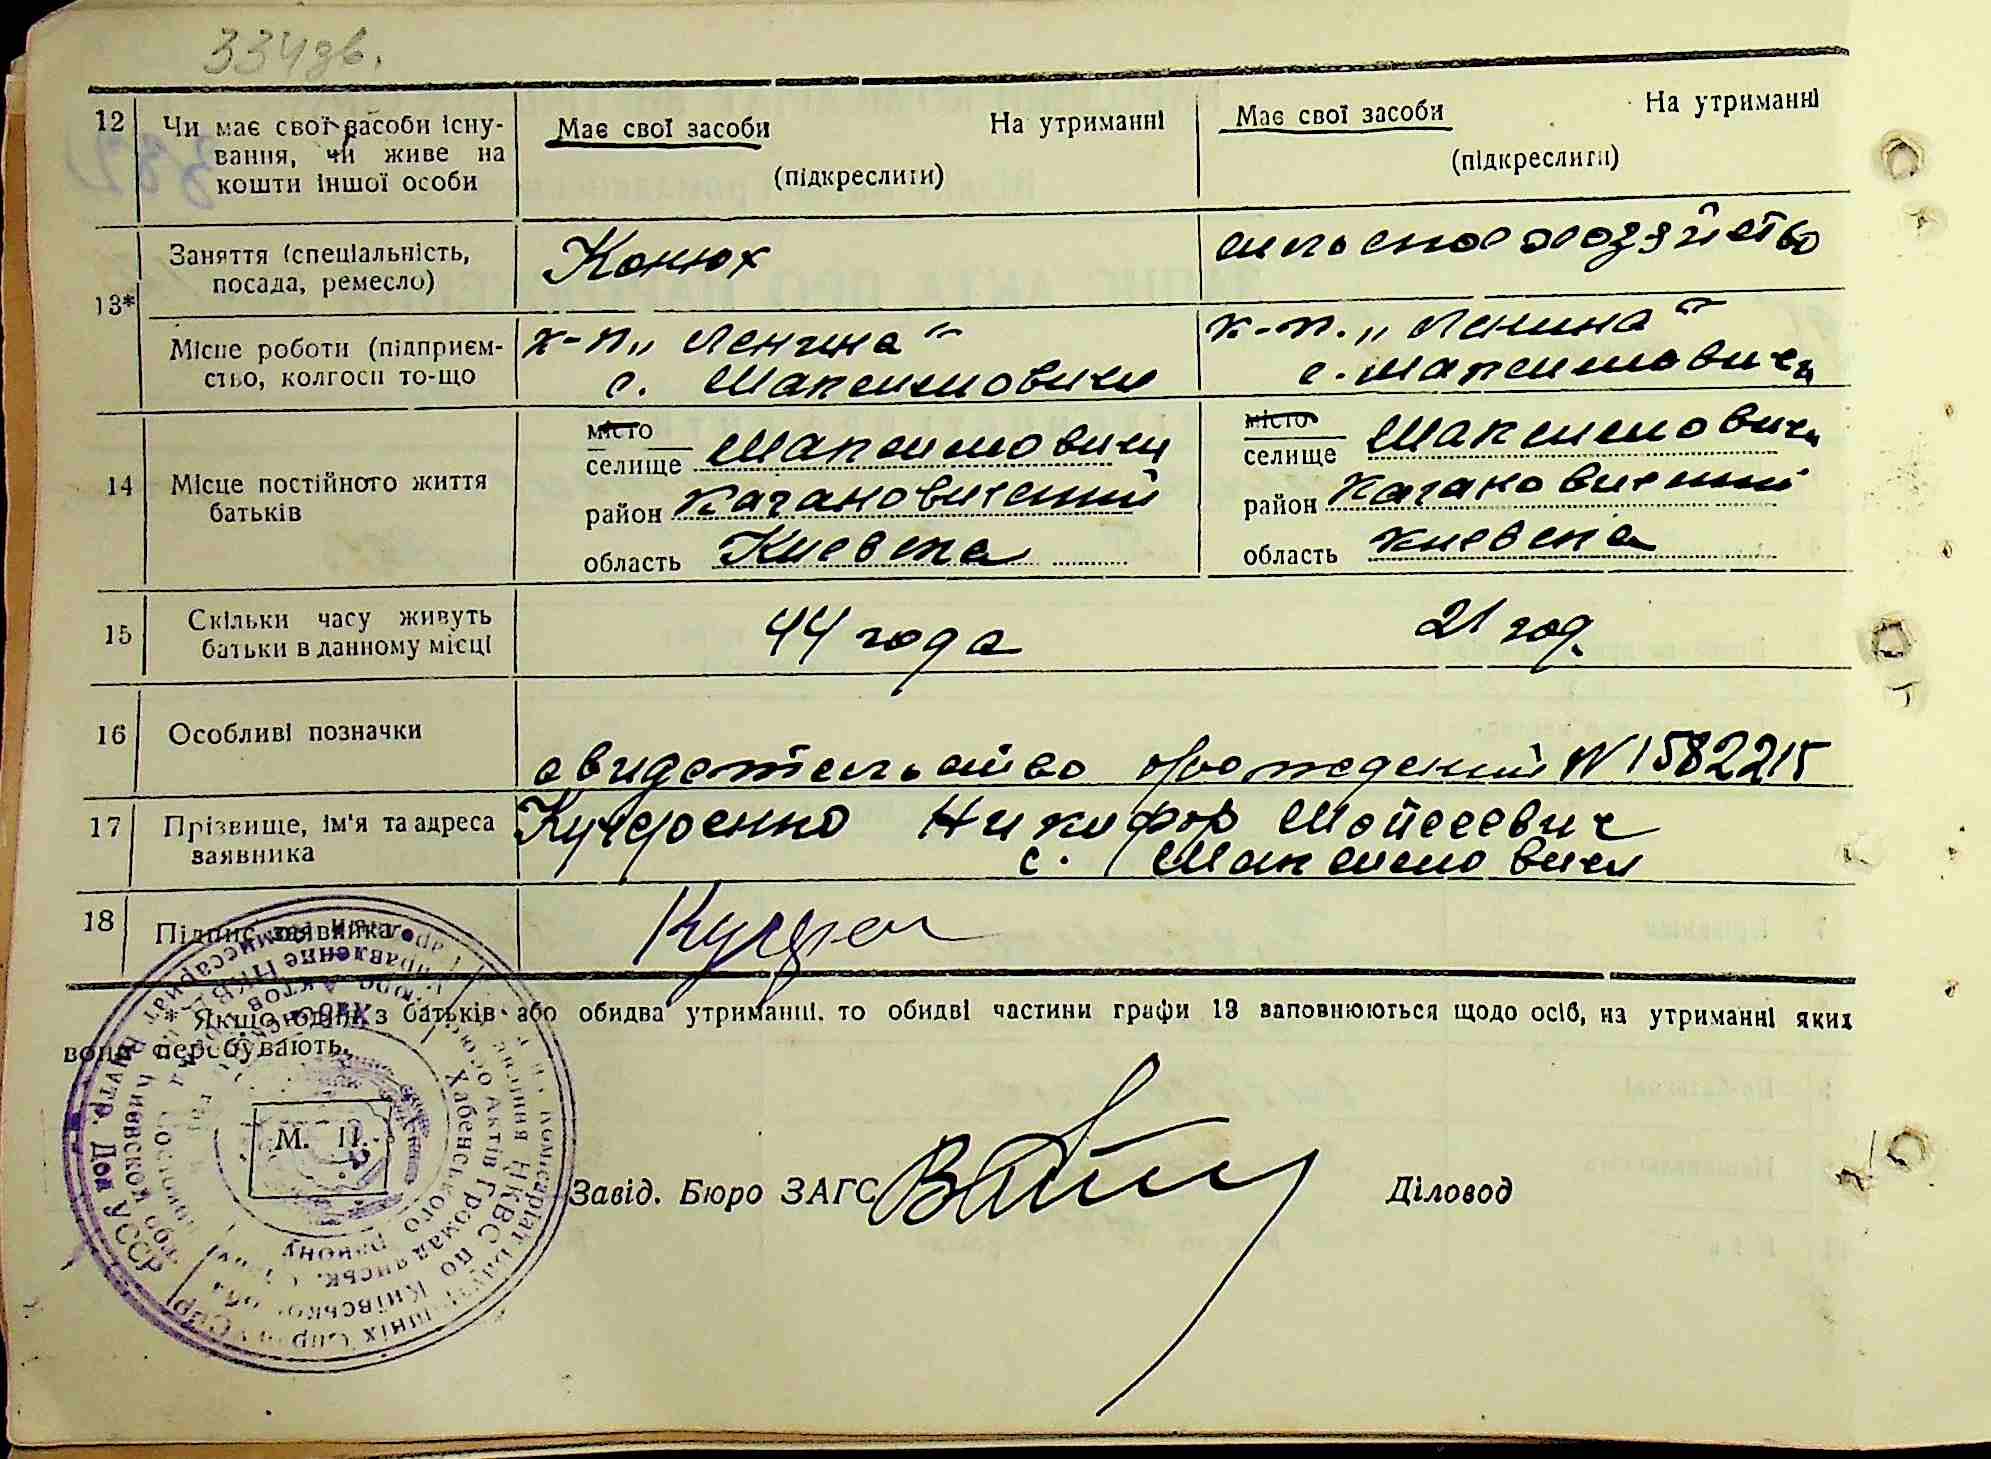 334зв.
12 Чи має свої засоби існу-
вання, чи живе на
кошти іншої особи
Має свої засоби На утриманні
(підкреслити)
Має свої засоби На утриманні
(підкреслити)
13*
Заняття (спеціальність,
посада, ремесло)
Конюх
сельское хозяйство
Місце роботи (підприєм-
ство, колгосп то-що
к-п „Ленина"
с. Максимовичи
к-п. „Ленина"
с. Максимовичи
14 Місце постійного життя
батьків
місто
селище Максимовичи
район Кагановический
область Киевска
місто
селище Максимовичи
район Кагановический
область Киевска
15 Скільки часу живуть
батьки в данному місці
44 года
21 год.
16 Особливі позначки
свидетельство рождений N 1582215
17 Прізвище, ім'я та адреса
заявника
Кучеренко Никифор Мойсеевич
с. Максимовичи
18 Підпис заявника
Кучерен
* Якщо один з батьків або обидва утриманці, то обидві частини графи 13 заповнюються щодо осіб, на утриманні яких
вони перебувають.
М. П.
Завід. Бюро ЗАГС
Діловод